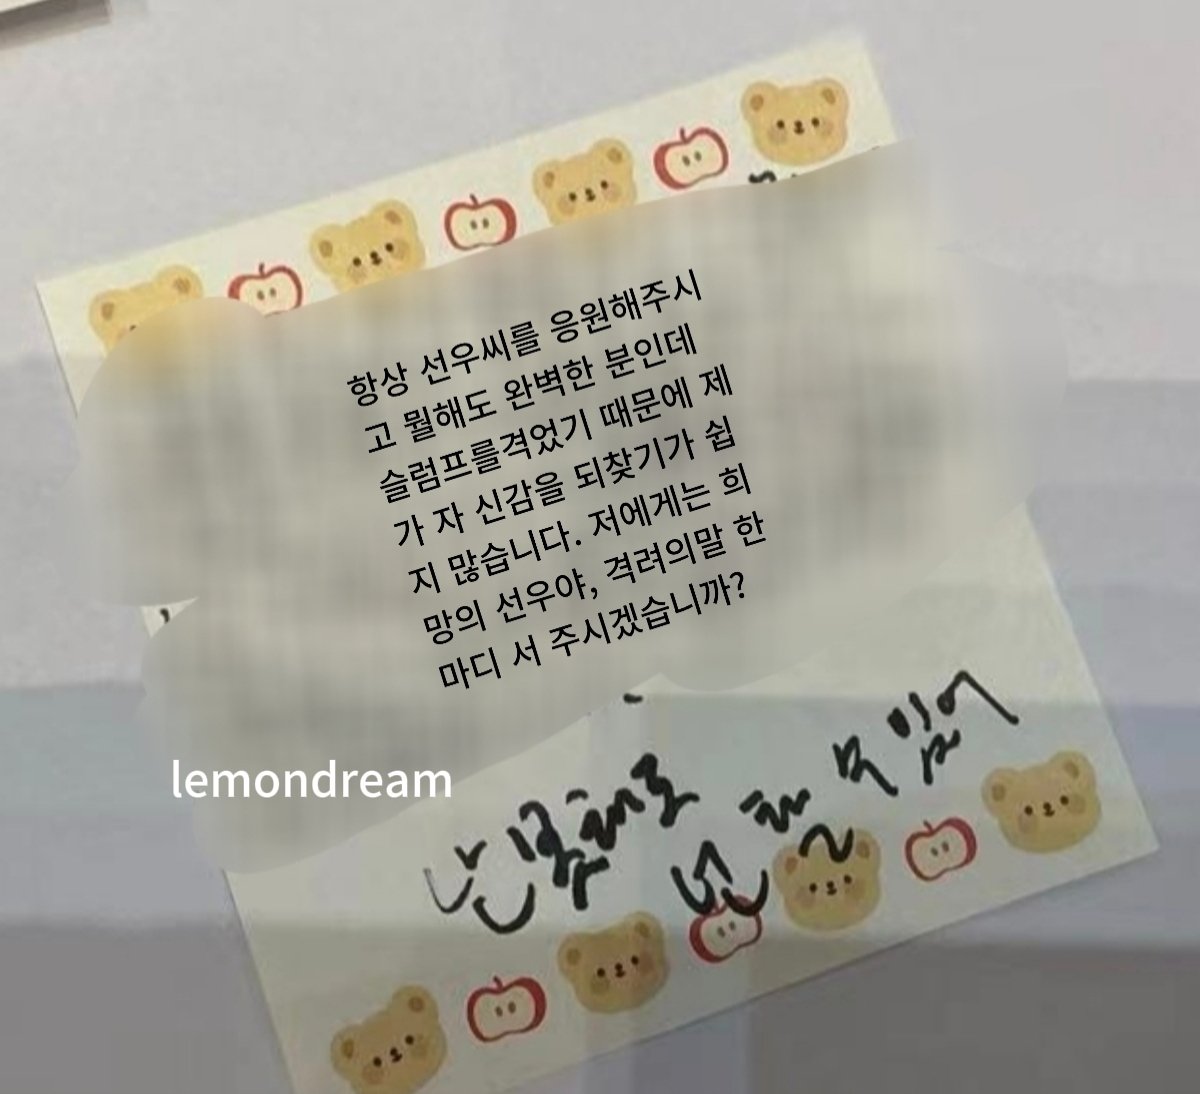 항상 선우씨를 응원해주시
고 뭘해도 완벽한 분인데
슬럼프를격었기 때문에 제
가 자 신감을 되찾기가 쉽
지 많습니다. 저에게는 희
망의 선우야, 격려의말 한
마디 서 주시겠습니까?
lemondream
난 못해도
넌 할 수 있어